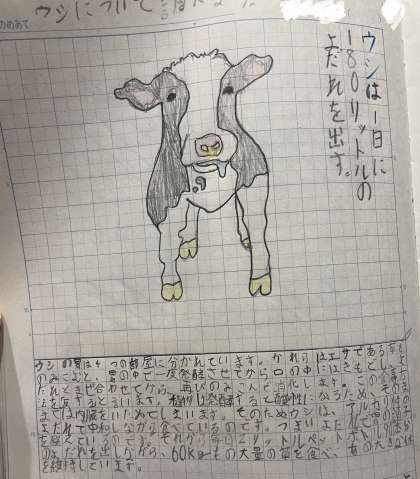 のめあて
ウシについて
ウシは1日に
180リットルの
よだれを出す。
ウシの胃は4つの部屋に分かれています。かれらはエサである草を
のみこむと、胃の中で一度発酵させてから口の中にはきもどし、
だ液とまぜ合わせてから、再びのみこんで消化します。この
法を反すうと言います。植物は発酵すると酸性になるため、その
ままでは内臓をいためてしまいます。そのためウシは、アルカリ性の
よだれで中和しながら食べているのです。つまりよだれで
を整えているのです。それが1日に2リットルペットボトル
のよだれを出しながら、60kgもの大量の草を食べ、あの大きな
を維持しています。